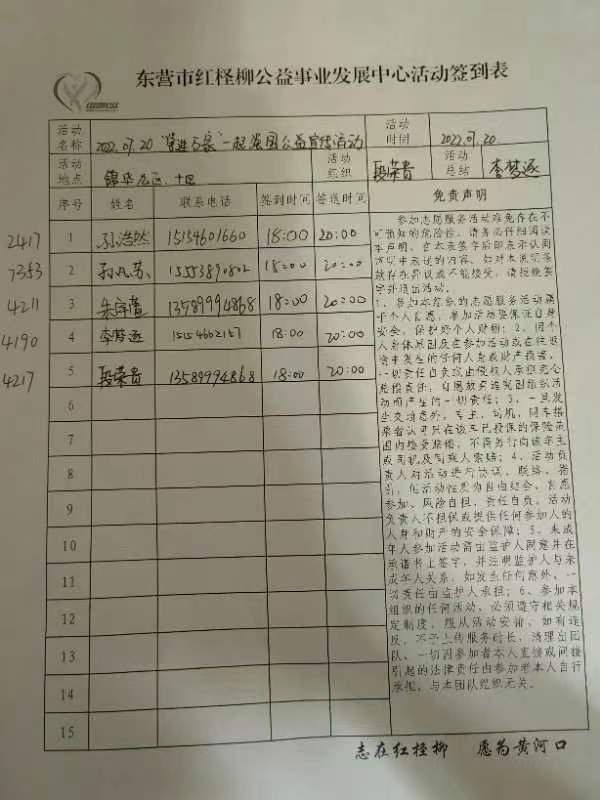 东营市红柽柳公益事业发展中心活动签到表
活动名称 2022.07.20 一起强国公益宣传活动 活动时间 2022.07.20
活动地点 锦华 区 十区 活动组织 段荣青 活动总结 李梦逐
序号 姓名 联系电话 签到时间 签送时间 免责声明
2417 1 孙浩然 15154601660 18:00 20:00
7353 2 孙凡苏 15553890802 18:00 20:00
4211 3 朱 13589994868 18:00 20:00
4190 4 李梦逐 15154602157 18:00 20:00
4217 5 段荣青 13589994868 18:00 20:00
6
7
8
9
10
11
12
13
14
15
参加志愿服务活动难免存在不
可预知的危险性，请务必仔细阅读
本声明，在本表签字后即表示认同
声明中表述的内容，如对本声明条
款存在异议或不能接受，请拒绝签
字并退出活动。
1、参加本组织的志愿服务活动属
于个人自愿，参加活动要保证自身
安全，保护好个人财物；2、因个
人身体原因及在参加活动或在往返
途中发生的任何人身或财产损害，
一切责任自负或由侵权人承担完全
赔偿责任，自愿放弃追究团组织活
动而产生的一切责任；3、一旦发
生交通意外，车主、司机、同车搭
乘者认可只在该车已投保的保险范
围内接受赔偿，不得另行向该车主
或司机及同乘人索赔；4、活动负
责人对活动进行协议、联络、指
引，但活动性质为自由结合、自愿
参加、风险自担、责任自负，活动
负责人不担保或提供任何参加人的
人身和财产的安全保障；5、未成
年人参加活动需由监护人同意并在
承诺书上签字，并注明监护人与未
成年人关系，如发生任何意外，一
切责任由监护人承担；6、参加本
组织的任何活动，必须遵守相关规
定制度，服从活动安排，如有违
反，不予上传服务时长，清理出团
队，一切因参加者本人直接或间接
引起的法律责任由参加者本人自行
承担，与本团队组织无关。
志在红柽柳 愿为黄河口